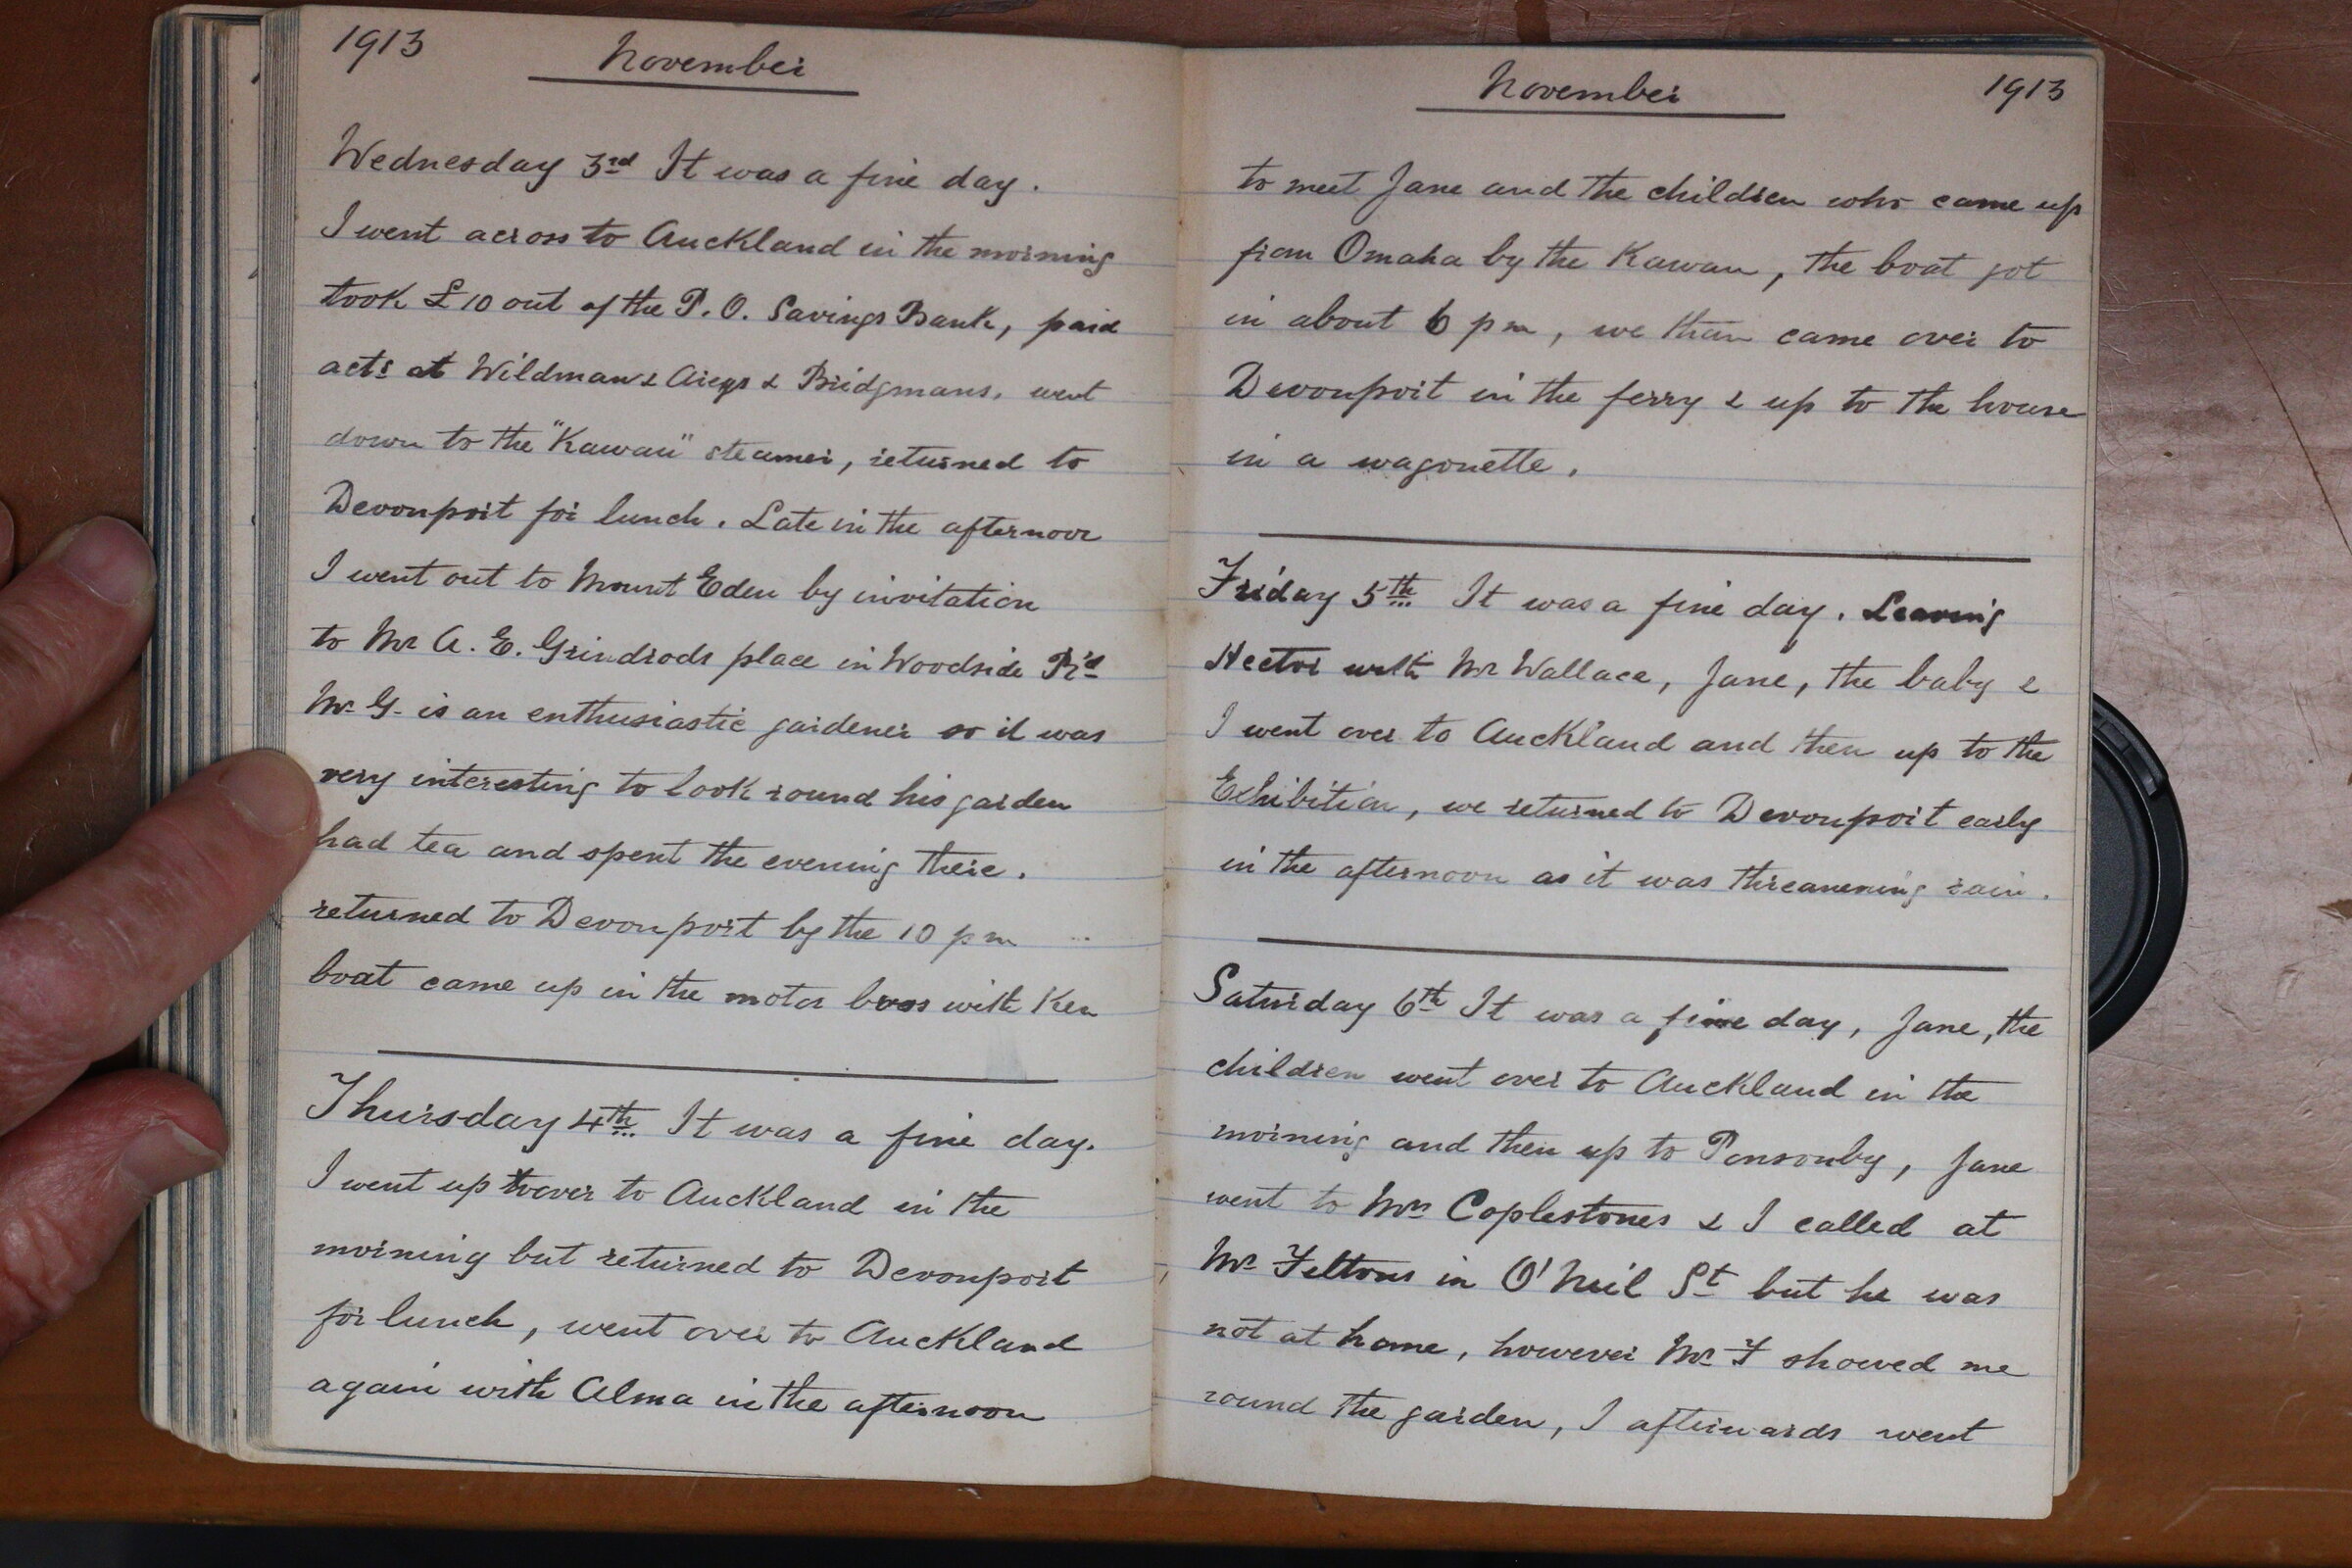 1913
November
Wednesday 3rd It was a fine day.
I went across to Auckland in the morning
took £10 out of the P.O. Savings Bank, paid
acts at Wildmans & & Bridgmans. went
down to the "Kawau" steamer, returned to
Devonport for lunch. Late in the afternoon
I went out to Mount Eden by invitation
to Mr A. E. Grindrods place in Woodside Rd
Mr G. is an enthusiastic gardener so it was
very interesting to look round his garden
had tea and spent the evening there.
returned to Devonport by the 10 pm
boat came up in the motor buss with Ken
Thursday 4th It was a fine day.
I went up over to Auckland in the
morning but returned to Devonport
for lunch, went over to Auckland
again with Alma in the afternoon
November
1913
to meet Jane and the children who came up
from Omaha by the Kawau, the boat got
in about 6 pm, we than came over to
Devonport in the ferry & up to the house
in a wagonette.
Friday 5th It was a fine day. Leaving
Hector with Mr Wallace, Jane, the baby &
I went over to Auckland and then up to the
Exhibition, we returned to Devonport early
in the afternoon as it was threanening rain.
Saturday 6th It was a fine day, Jane, the
children went over to Auckland in the
morning and then up to Ponsonby, Jane
went to Mrs Coplestones & I called at
Mr Feltons in O'Neil St but he was
not at home, however Mrs F showed me
round the garden, I afterwards went